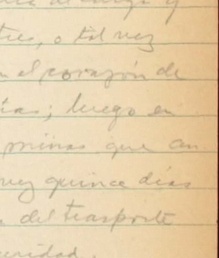 tres, o tal vez
el corazón de
ías; luego en
minas que an
vez quince días
del trasporte
uridad.